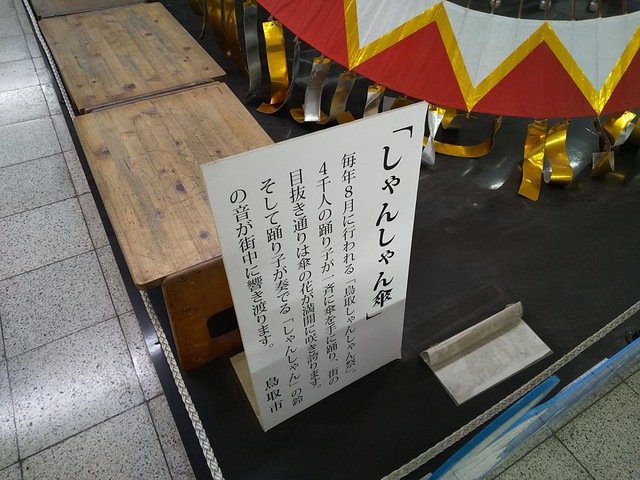 「しゃんしゃん傘」
毎年8月に行われる「鳥取しゃんしゃん祭」。
4千人の踊り子が一斉に傘を手に踊り、街の
目抜き通りは傘の花が満開に咲き誇ります。
そして踊り子が奏でる「しゃんしゃん」の鈴
の音が街中に響き渡ります。
鳥取市